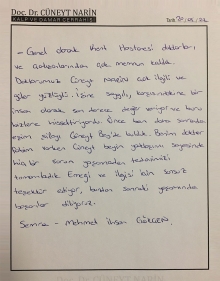 Doç. Dr. CÜNEYT NARİN
KALP VE DAMAR CERRAHİSİ
- Genel olarak Kent Hastanesi doktorları
ve çalışanlarından çok memnun kaldık.
Doktorumuz Cüneyt NARİN çok ilgili ve
güler yüzlüydü. İşine saygılı, karşısındakine bir
insan olarak son derece değer veriyor ve bunu
bizlere hissettiriyordu. Önce ben daha sonrada
eşim dolayı Cüneyt Bey'de kaldık. Benim doktor
Cüneyt beyin yaptığını sayesinde
hiç bir sorun yaşamadan tedavimizi
tamamladık. Emeği ve ilgisi için sonsuz
teşekkür ediyor, bundan sonraki yaşamında
başarılar diliyoruz.
Semra - Mehmet İhsan